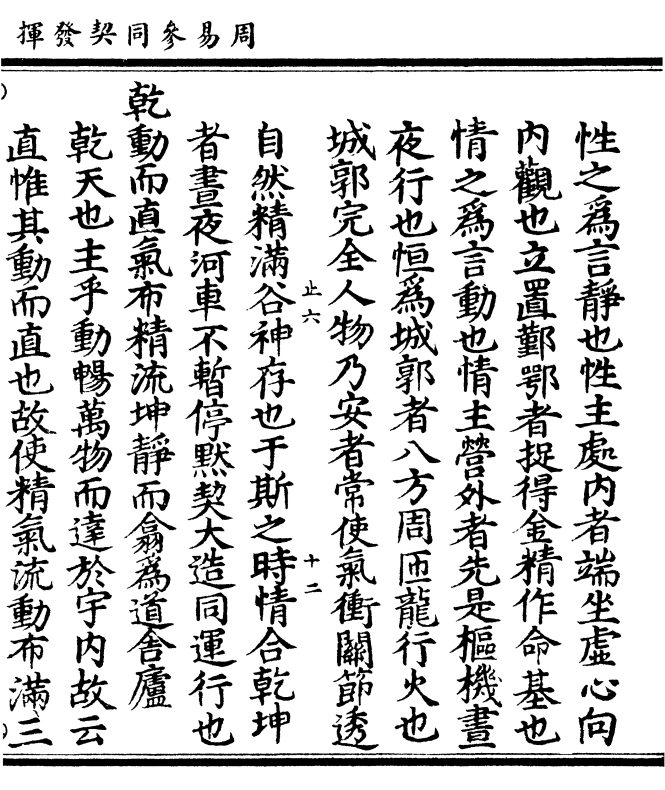 周易參同契發揮
性之爲言靜也性主處內者端坐虛心向
內觀也立置鄞鄂者捉得金精作命基也
情之爲言動也情主營外者先是樞機晝
夜行也恒爲城郭者八方周匝龍行火也
城郭完全人物乃安者常使氣衝關節透
止六
十二
自然精滿谷神存也于斯之時情合乾坤
者晝夜河車不暫停默契大造同運行也
乾動而直氣布精流坤靜而翕爲道舍廬
乾天也主乎動暢萬物而達於宇內故云
直惟其動而直也故使精氣流動布滿三